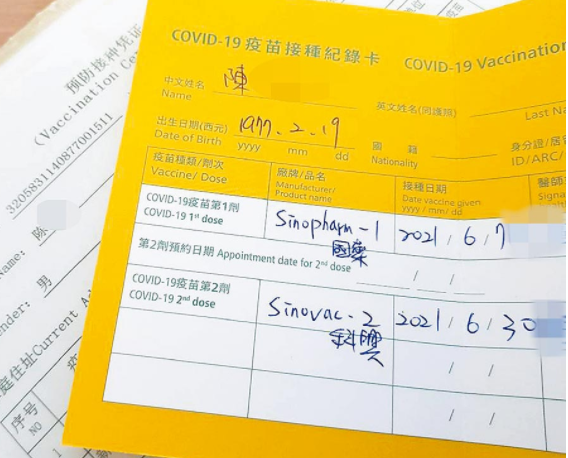 COVID-19疫苗接種紀錄卡 COVID-19 Vaccination
中文姓名 陳
Name
英文姓名(同護照)
Last Na
出生日期(西元) 1977.2.19
Date of Birth yyyy mm dd
國籍
Nationality
身分證/居
ID/ARC/
疫苗種類/劑次
Vaccine/ Dose
廠牌/品名
Manufacturer/
Product name
接種日期
Date vaccine given
yyyy / mm / dd
醫師
Signa
COVID-19疫苗第1劑
COVID-19 1st dose
Sinopharm-1
國藥
2021/6/7
第2劑預約日期 Appointment date for 2nd dose / /
COVID-19疫苗第2劑
COVID-19 2nd dose
Sinovac-2
科興
2021/6/30
/ /
/ /
预防接种凭证
(Vaccination Ce
3205831140877001511
陈
Name:
ender: 男
庭住址Current Ad
序号
NO
疫